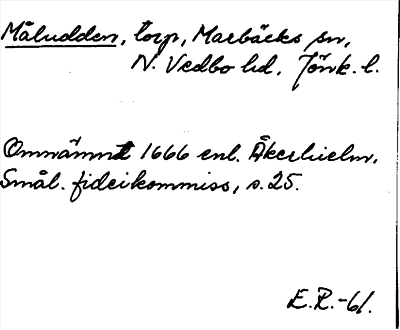 Måludden, torp, Marbäcks sn,
N. Vedbo hd. Jönk. l.
Omnämnt 1666 enl. Åkerhielm,
Smål. fideikommiss, s. 25.
E.R.-61.